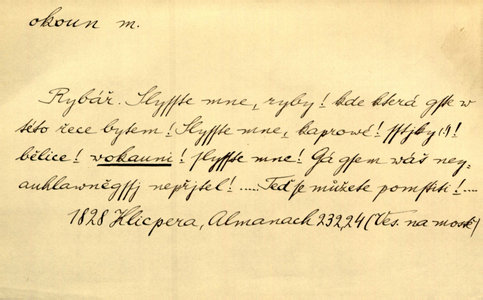 okoun m.
Rybář. Slyffte mne, ryby! kde která gfte w
této řece bytem! Slyffte mne, kaprowé! fftjky!
bělice! wokauni! flyffte mne! Gá gfem wáš ney-
auhlawněgffj nepřjtel! ..... Teď fe můžete pomftiti! ....
1828 Klicpera, Almanach 232,24 (Ves. na mostě)